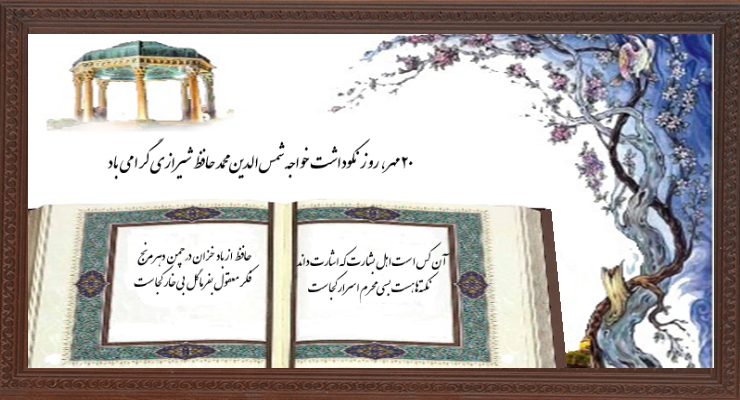 ۲۰ مهر، روز نکوداشت خواجه شمس الدین محمد حافظ شیرازی گرامی باد
آن کس است اهل بشارت که اشارت داند
نکته‌ها هست بسی محرم اسرار کجاست
حافظ از باد خزان در چمن دهر مرنج
فکر معقول بفرما گل بی خار کجاست